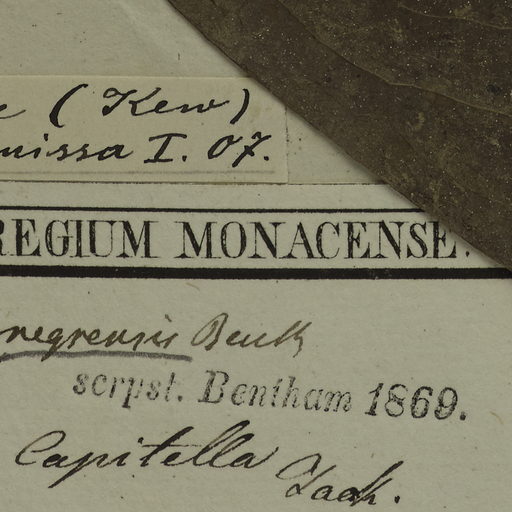 (Kew)
missa I. 07.
REGIUM MONACENSE.
negrensis Benth
scrpst. Bentham 1869.
Capitella